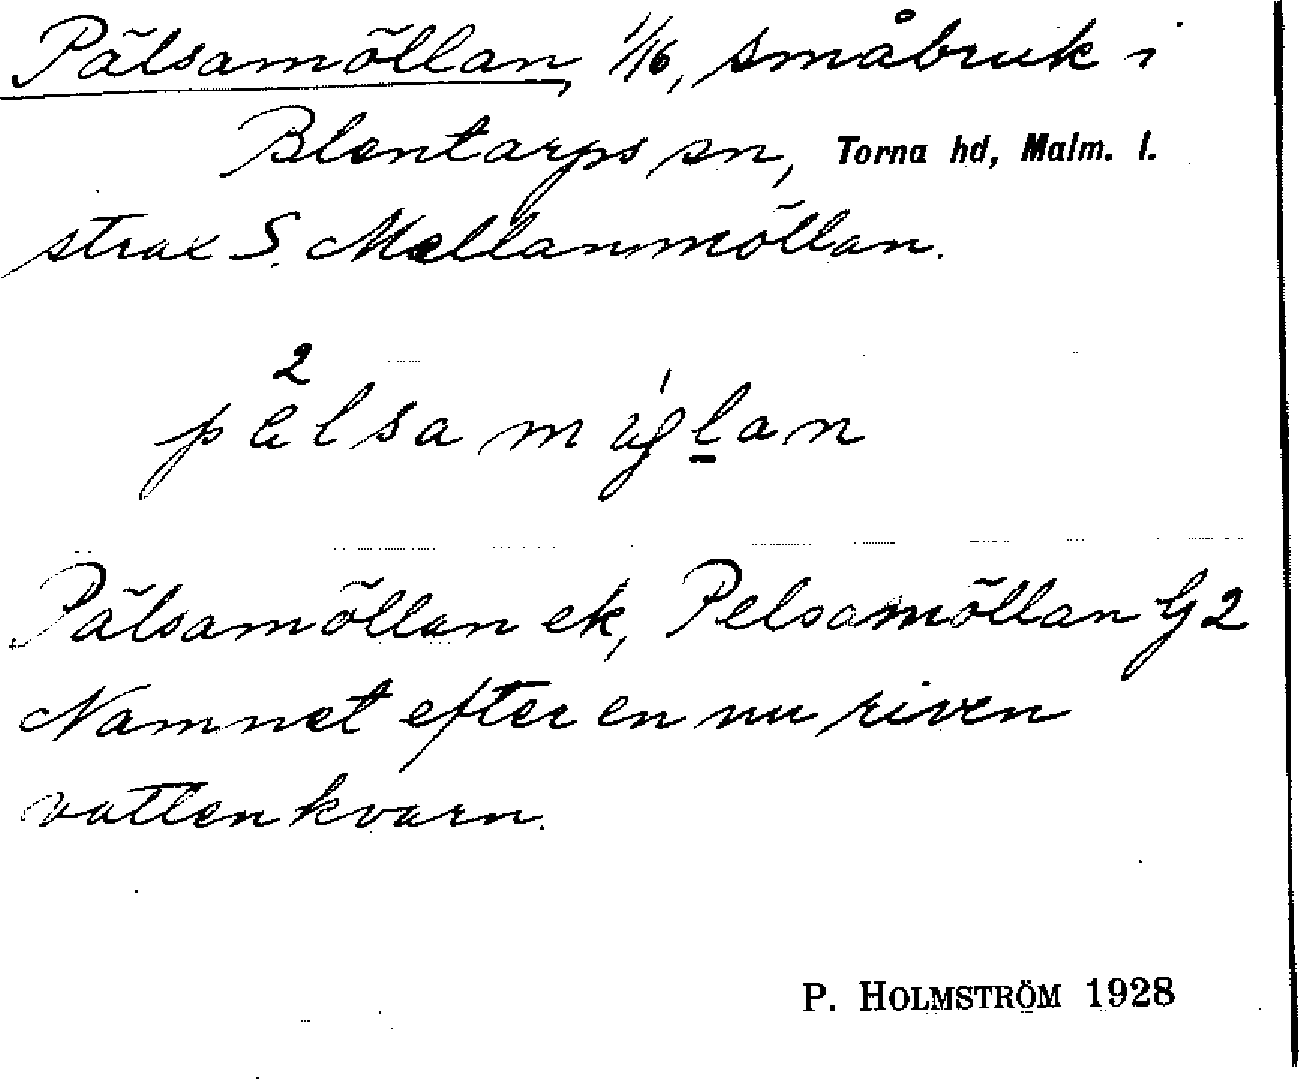 Pälsamöllan, 1/16, småbruk i
Blentarps sn, Torna hd, Malm. l.
strax S. Mellanmöllan.
Pälsamöllan ek, Pelsamöllan G2
Namnet efter en nu riven
vattenkvarn.
P. HOLMSTRÖM 1928